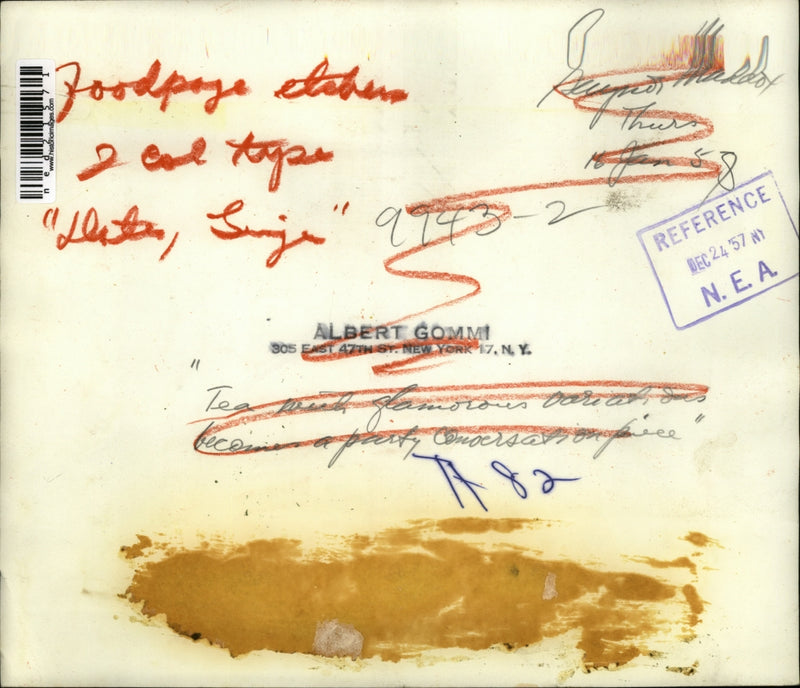 Foodpage etchers
2 col tape
"Dates, Ginger"
Gaynor Maddox
Thurs
16 Jan 58
9943-2
REFERENCE
DEC 24 '57 NY
N.E.A.
ALBERT GOMMI
305 EAST 47TH ST. NEW YORK 17, N. Y.
"Tea with glamorous variations
becomes a party conversation piece"
82
www.historicimages.com